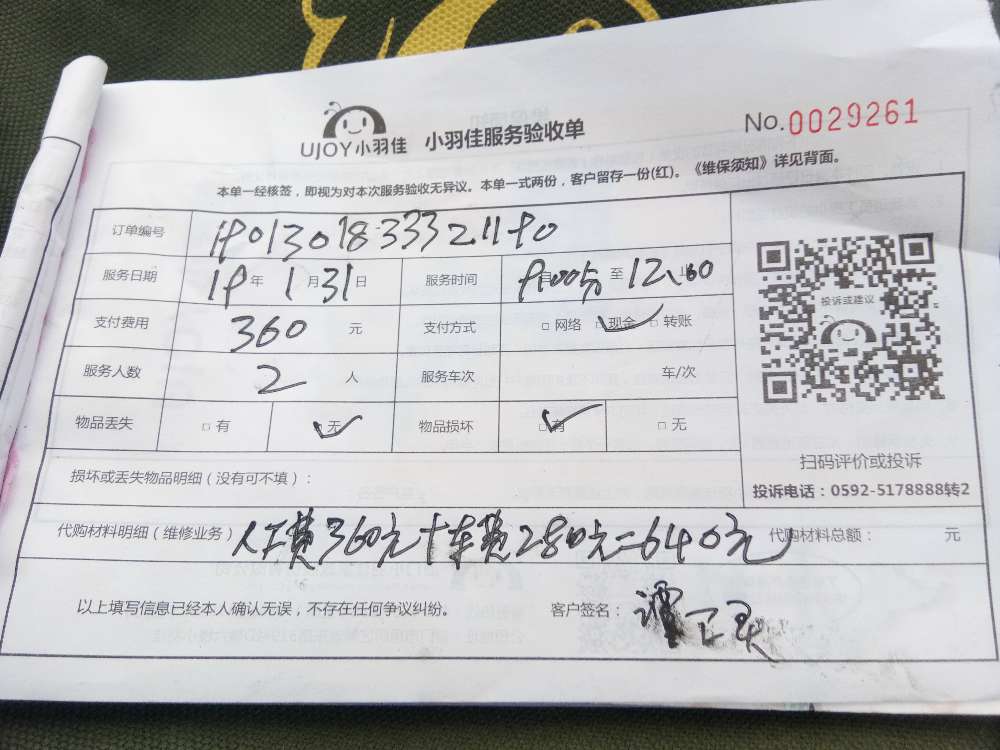 UJOY小羽佳 小羽佳服务验收单 No.0029261
本单一经核签，即视为对本次服务验收无异议。本单一式两份，客户留存一份(红)。《维保须知》详见背面。
订单编号 1901301833321190
服务日期 19年 1月31日 服务时间 9:00点 至 12:00
支付费用 360 元 支付方式 □ 网络 □ 现金 □ 转账
服务人数 2 人 服务车次 车/次
物品丢失 □ 有 □ 无 物品损坏 □ 有 □ 无
投诉或建议
扫码评价或投诉
投诉电话：0592-5178888转2
损坏或丢失物品明细（没有可不填）：
代购材料明细（维修业务）人工费360元十车费280元=640元 代购材料总额： 元
以上填写信息已经本人确认无误，不存在任何争议纠纷。 客户签名：谭